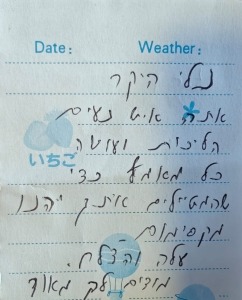 Date: Weather:
גלי היקר
אתה איש נעים
הליכות ועושה
いちご
כל מאמץ כדי
שהמטיילים איתך יהנו
מקסימום
עלה והצלח.
מודים לך מאוד